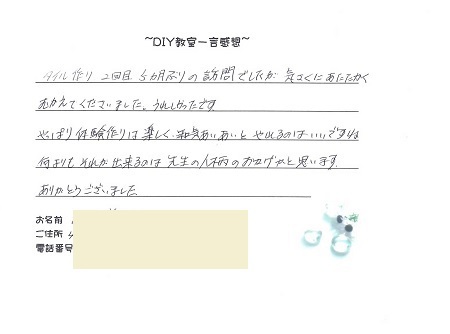 ~DIY教室一言感想~
タイル作り 2回目 5ヵ月ぶりの訪問でしたが 気さくにあたたかく
むかえてくださいました。うれしかったです
やっぱり体験作りは楽しく、和気あいあいと やれるのは いいですね
何よりも それが出来るのは 先生の人柄のおかげかと思います。
ありがとうございました
お名前
ご住所
電話番号